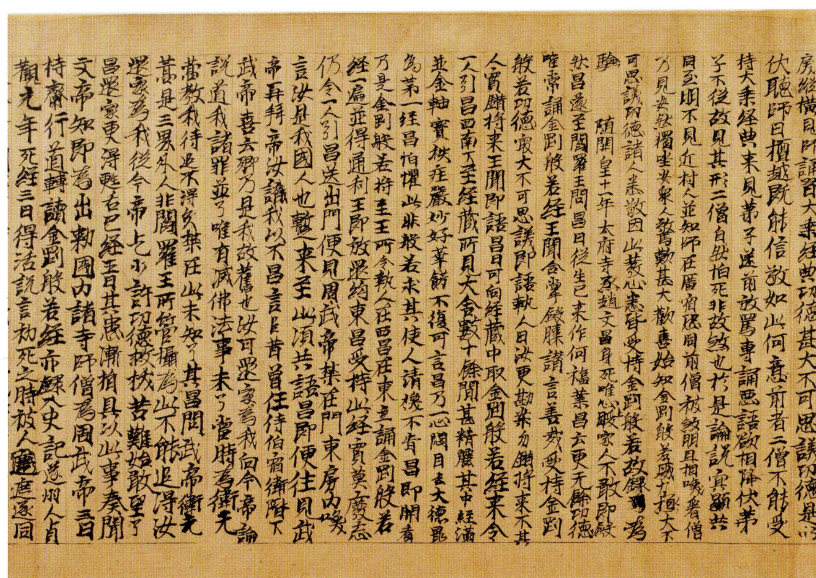 房縱橫見師誦百大乘經典功德甚大不可思議功德是以
伏聽師曰檀越既能信敬如此何意前者二僧不能受
持大乘經典來見弟子遂前放罵專誦惡語欲相降伏弟
子不從故見其形二僧自然怕死非故煞也於是論說顯共
同至明不見近村人並知師在廟宿恐同前僧被煞明旦相喚看僧
乃見安然獨坐衆人驚歎甚大歡喜始知金剛般若威力極大不
可思議功德諸人敬因此發心悉皆受持金剛般若故録為
驗 随開皇十一年太府寺丞趙文昌身死唯心上暖家人不敢即殮
然昌遂至閻羅王問昌曰從生已來作何福業昌云更无餘功德
唯常誦金剛般若經王聞合掌歛膝讚言善哉受持金剛
般若功德最大不可思議即語執人曰汝更勘案勿錯將來不其
人實錯將來王聞即語昌曰可向經藏中取金剛般若經來令
一人引昌西南下至經藏所見大舍數十餘間甚精麗其中經滿
並金軸寶袟莊嚴妙好華飾不復可言昌乃一心閇目去大德
為第一經昌怕懼此非般若求其使人請換不肯昌即開看
乃是金剛般若將至王所令執人在西昌在東立誦金剛般若
經一遍並得通利王即放還約束昌受持此經實莫廢忘
仍令一人引昌送出門便見周武帝禁在門東房內喚
言汝是我國人也暫來至此須共語昌即便往見武
帝再拜帝汝識我以不昌言臣昔曾任侍伯宿衛陛下
武帝喜云卿乃是我故舊也汝可還家為我向今帝論
說道我諸罪並了唯有滅佛法事未了當時為衛元
嵩教我待追不得以禁在此未知了其昌問武帝衛元
嵩是三界外人非閻羅王所管攝為此不能追得汝
還家為我從今帝乞少許功德救拔苦難始敢望了
昌還家更得甦右已經五日其患漸損具以此事奏聞
文帝知即為出勑國內諸寺師僧為周武帝三日
持齋行道轉讀金剛般若經亦錄入史記遂州人貞
觀元年死經三日得活說言初死之時被人逐同